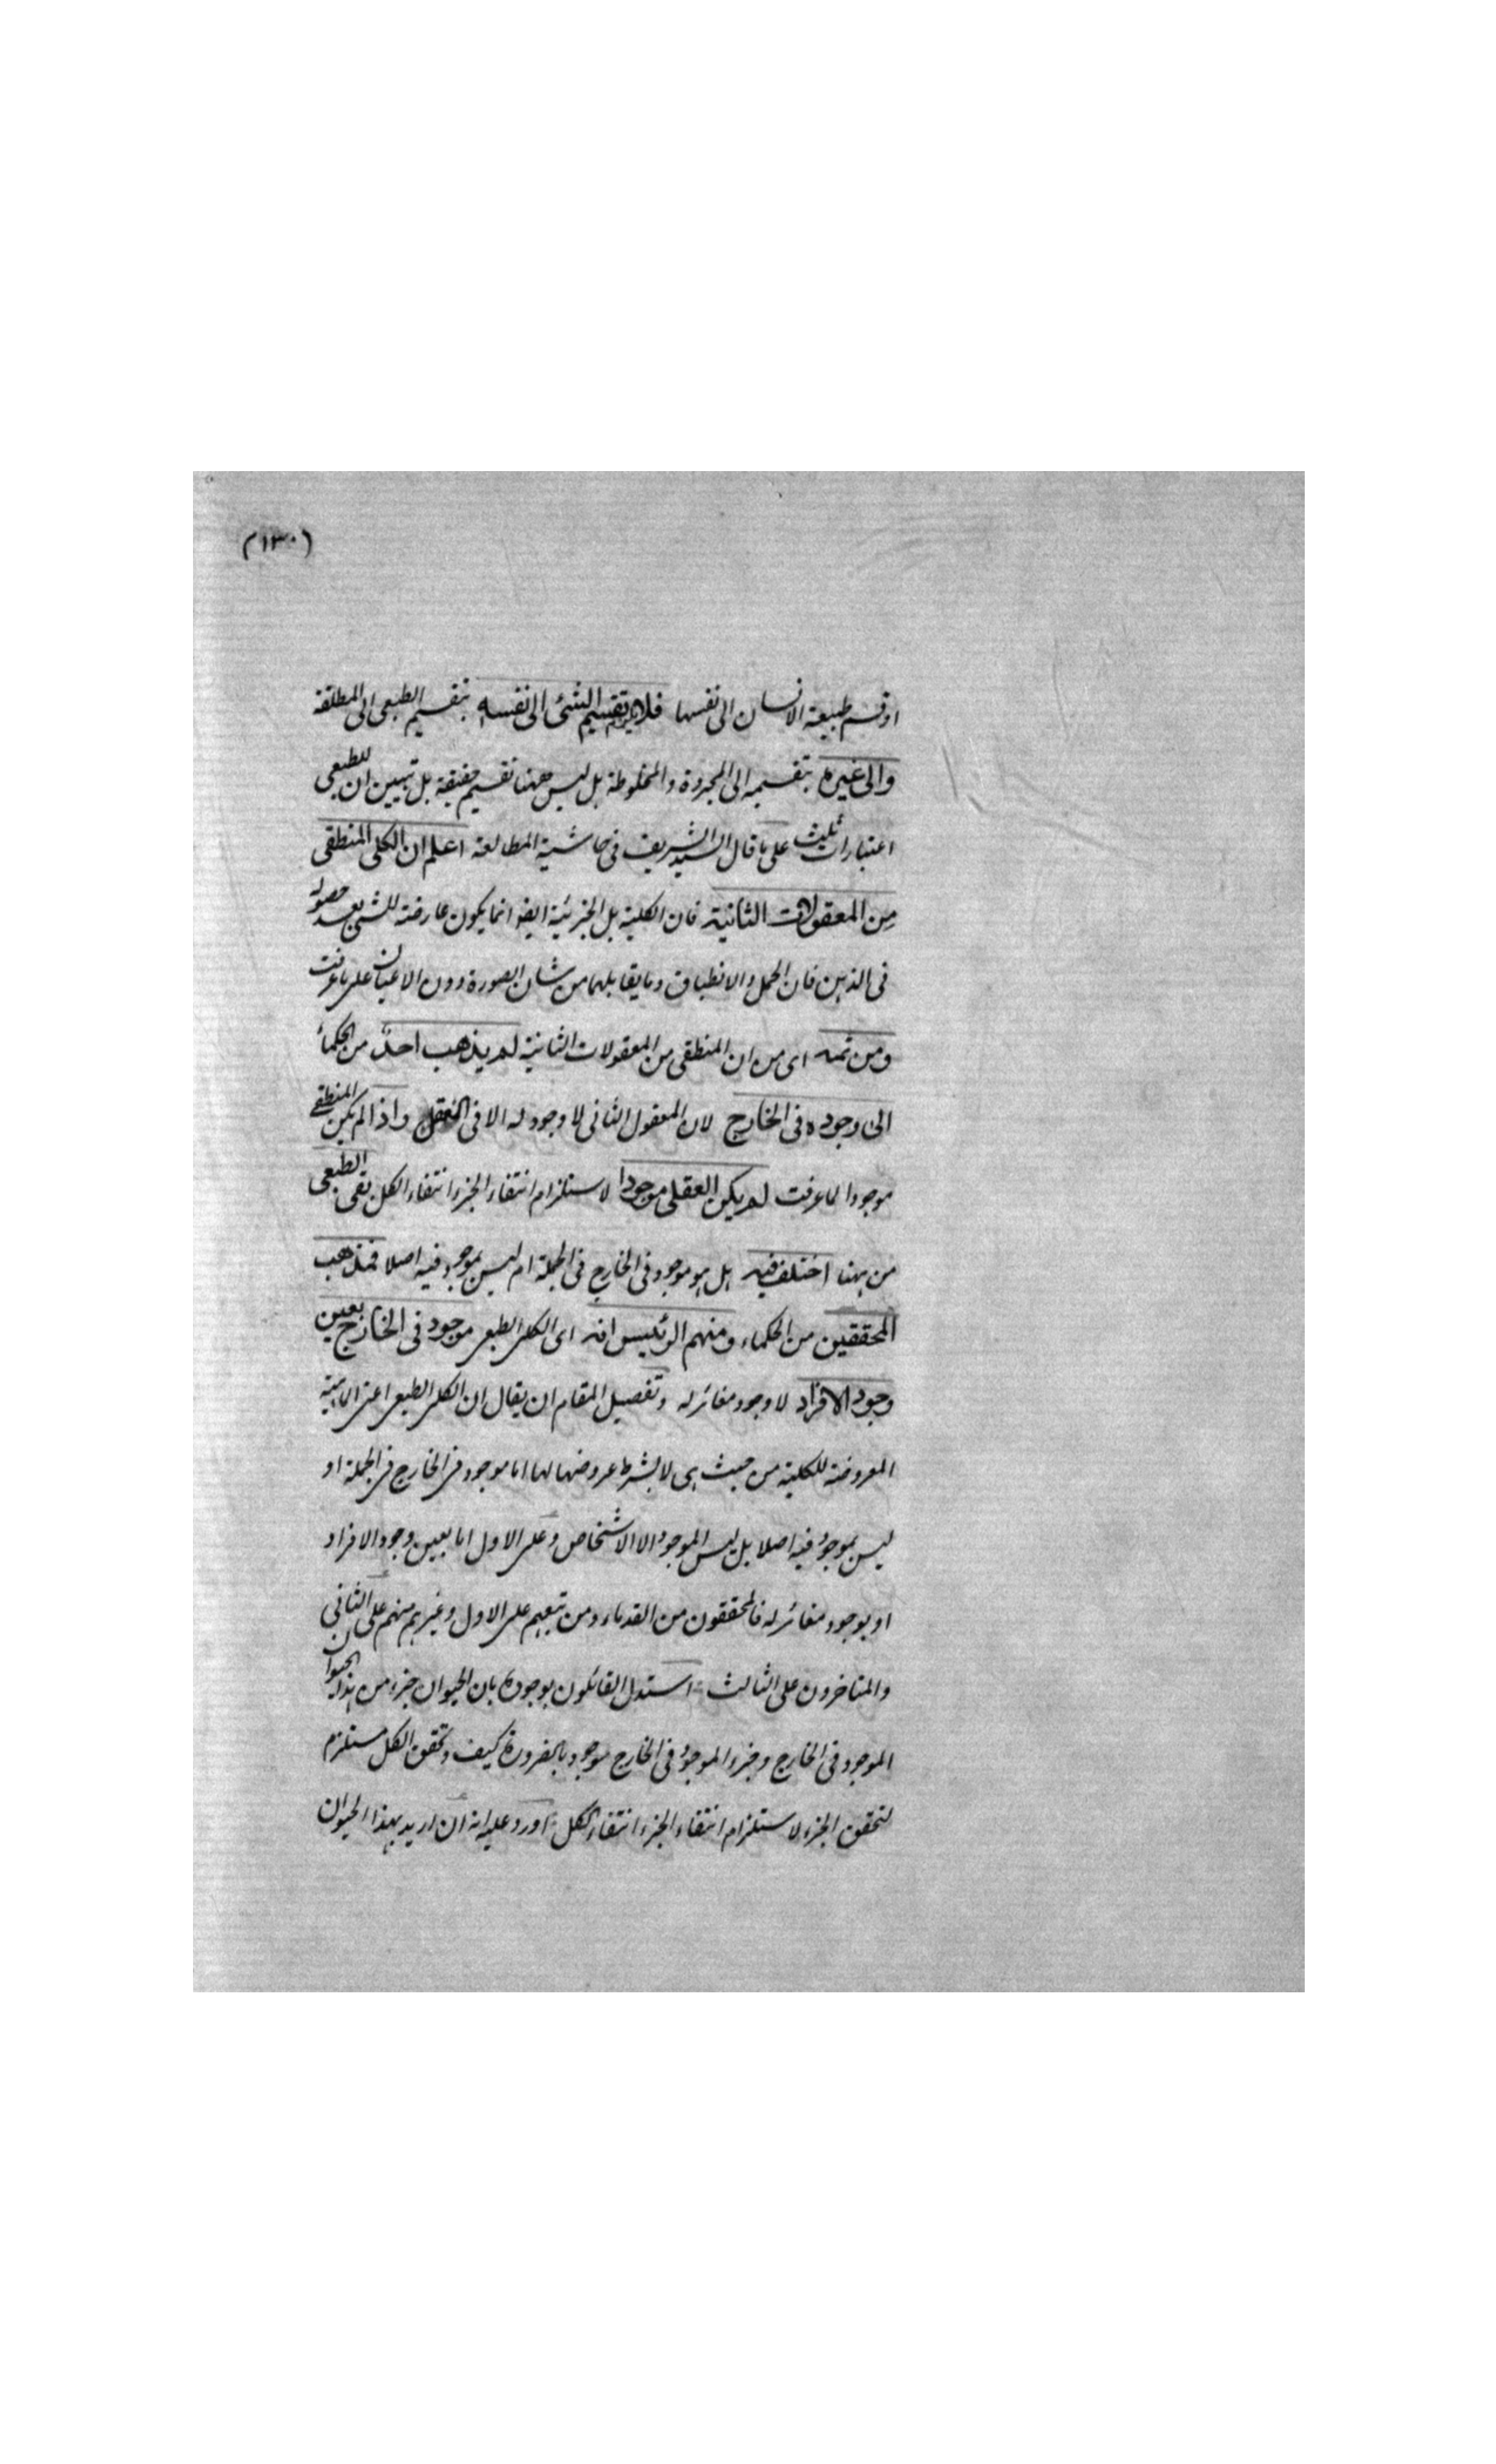 (١٣٠)
او قسم طبيعة الانسان الى نفسها فلا يلزم تقسيم الشئ الى نفسه بتقسيم الطبعى الى المطلقة
والى غيره بتقسيمه الى المجردة والمخلوطة بل ليس ههنا تقسيم حقيقة بل تبيين ان للطبعى
اعتبارات ثلث على ما قال السيد الشريف فى حاشية المطالعة اعلم ان الكلى المنطقى
من المعقولات الثانية فان الكلية بل الجزئية ايضا انما يكون عارضة للشئ بعد حصوله
فى الذهن فان الحمل والانطباق وما يقابلهما من شان الصورة دون الاعيان على ما عرفت
ومن ثمه اى من ان المنطقى من المعقولات الثانية لم يذهب احد من الحكماء
الى وجوده فى الخارج لان المعقول الثانى لا وجود له الا فى العقل واذا لم يكن المنطقى
موجودا لما عرفت لم يكن العقلى موجودا لاستلزام انتفاء الجزء انتفاء الكل بقى الطبعى
من ههنا اختلف فيه هل هو موجود فى الخارج فى الجملة ام ليس بموجود فيه اصلا فمذهب
المحققين من الحكماء ومنهم الرئيس انه اى الكلى الطبعى موجود فى الخارج بعين
وجود الافراد لا وجود مغائر له وتفصيل المقام ان يقال ان الكلى الطبعى اعنى الماهية
المعروضة للكلية من حيث هى لا بشرط عروضها لها اما موجود فى الخارج فى الجملة او
ليس بموجود فيه اصلا بل ليس الموجود الا الاشخاص وعلى الاول اما بعين وجود الافراد
او بوجود مغائر له فالمحققون من القدماء ومن تبعهم على الاول وغيرهم منهم على الثانى
والمتاخرون على الثالث استدل القائلون بوجوده بان الحيوان جزء من هذا الحيوان
الموجود فى الخارج وجزء الموجود فى الخارج موجود بالضرورة كيف وتحقق الكل مستلزم
لتحقق الجزء لاستلزام انتفاء الجزء انتفاء الكل اورد عليه انه ان اريد بهذا الحيوان